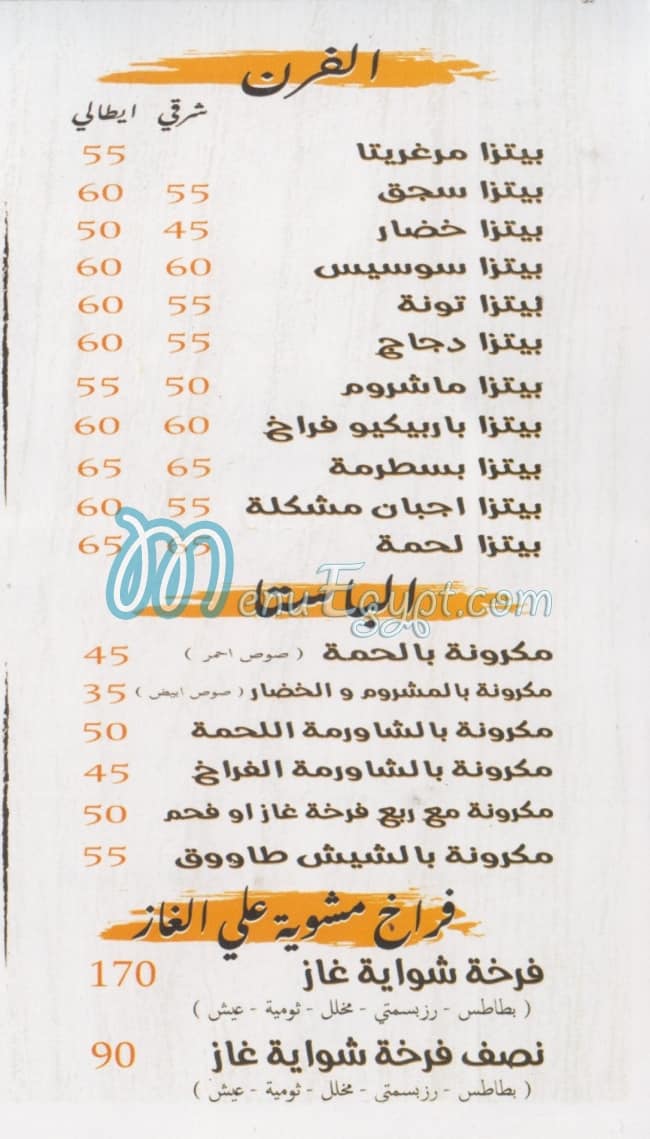 الفرن
شرقي ايطالي
بيتزا مرغريتا 55
بيتزا سجق 55 60
بيتزا خضار 45 50
بيتزا سوسيس 60 60
بيتزا تونة 55 60
بيتزا دجاج 55 60
بيتزا ماشروم 50 55
بيتزا باربيكيو فراخ 60 60
بيتزا بسطرمة 65 65
بيتزا اجبان مشكلة 55 60
بيتزا لحمة 65 65
MenuEgypt.com
الباستا
مكرونة بالحمة ( صوص احمر ) 45
مكرونة بالمشروم و الخضار ( صوص ابيض ) 35
مكرونة بالشاورمة اللحمة 50
مكرونة بالشاورمة الفراخ 45
مكرونة مع ربع فرخة غاز او فحم 50
مكرونة بالشيش طاووق 55
فراخ مشوية علي الغاز
فرخة شواية غاز 170
( بطاطس - رزبسمتي - مخلل - ثومية - عيش )
نصف فرخة شواية غاز 90
( بطاطس - رزبسمتى - مخلل - ثومية - عيش )